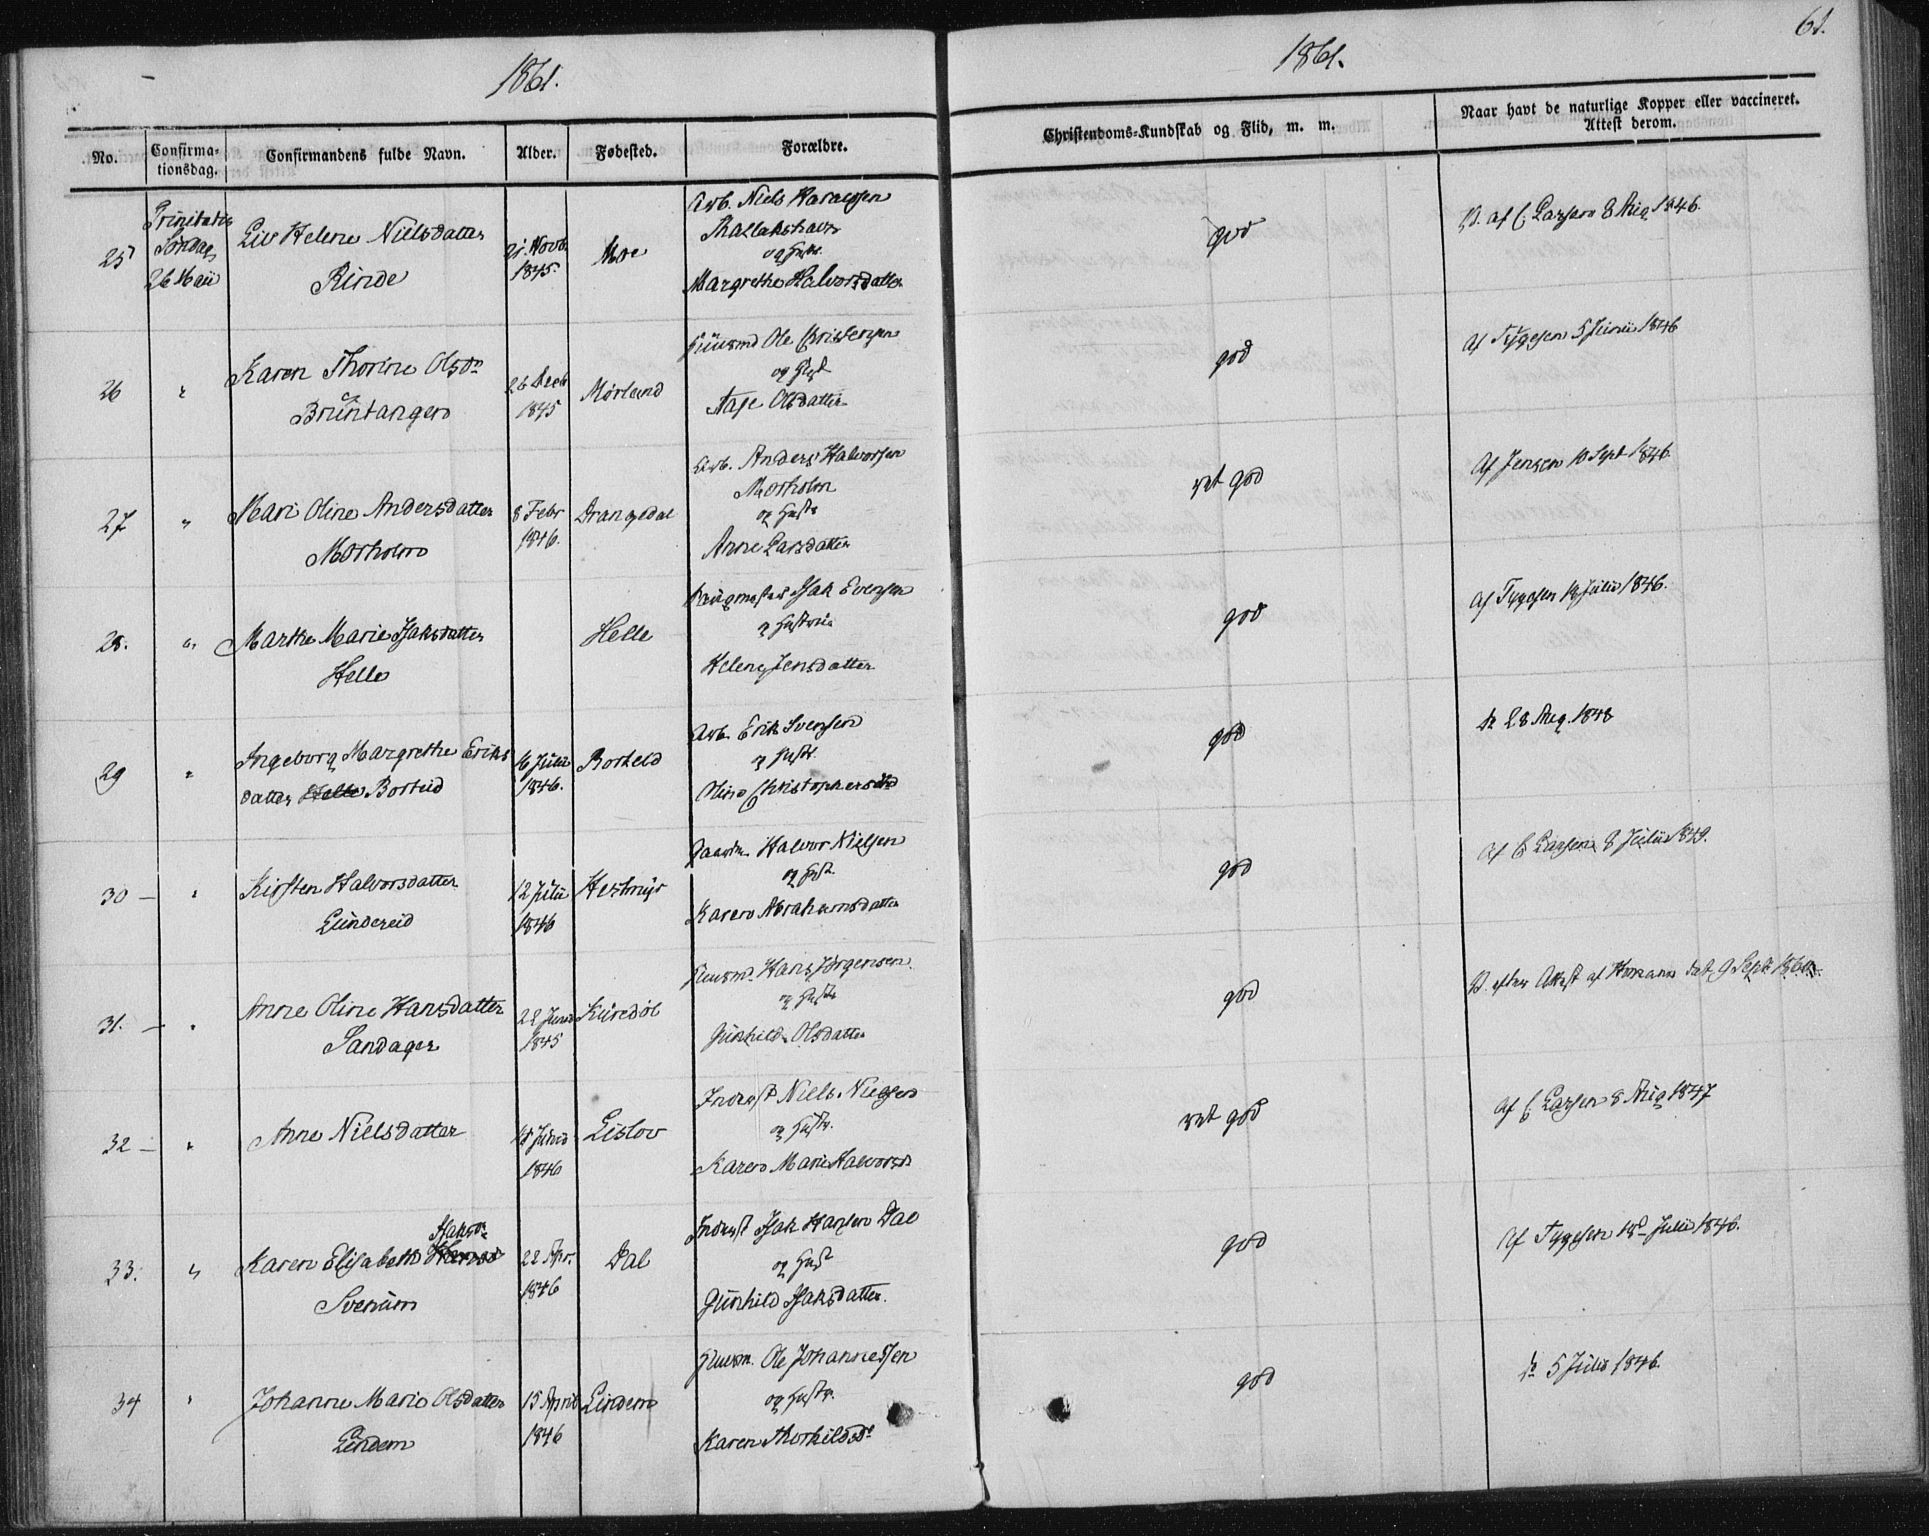 1861.
1861.
61.
No.
Confirma-
tionsdag.
Confirmandens fulde Navn.
Alder.
Fødested.
Forældre.
Christendoms-Kundskab og Flid, m. m.
Naar havt de naturlige Kopper eller vaccineret.
Attest derom.
25
Trinitatis
Søndag
26 Maii
Liv Helene Nielsdatter
Rinde
21 Novbr
1845
Moe
Arb. Niels
og Hustr.
Margrethe Halvorsdatter
god
V. af C. Larsen 8 Aug 1846.
26
"
Karen Thorine Olsdr
Bruntangen
26 Decb
1845
Mørland
Huusmd Ole Christensen
og Hust
Aase Olsdatter
god
Af Tygesen 5 Junii 1846
27
"
Mari Oline Andersdatter
Morholm
8 Febr
1846.
Drangedal
Arb. Anders Halvorsen
Morholm
og Hustr
Anne Larsdatter
ret god
Af Jensen 10 Sept 1846.
28.
"
Marthe Marie Isaksdatter
Helle
Helle
Isak Evensen
og Hustrue
Helene Jensdatter
god
Af Tygesen 19 Julii 1846.
29
"
Ingeborg Margrethe Eriks
datter Helle Borteid
16 Julii
1846.
Borteid
Arb. Erik Svensen
og Hustr.
Oline Christophersdtr
god
dr 28 Aug. 1848
30 -
"
Kirsten Halvorsdatter
Lundereid
12 Julii
1846
Hestmyr
Gaardm. Halvor Nielsen
og Hustr
Karen Abrahamsdatter
god
Af C Larsen 8 Julii 1849.
31. -
"
Anne Oline Hansdatter
Sandager
22 Junii
1845
Kuredøl
Huusmd. Hans Jørgensen
og Hustr
Gunhild Olsdatter
god
V. efter Attest af Homann dat. 9 Sept 1860.
32 -
"
Anne Nielsdatter
18 Junii
1846
Lislov
Inderst Niels Nielsen
og Hustr.
Karen Marie Halvorsdr
ret god
Af C Larsen 8 Aug 1847
33.
"
Isaksdr
Karen Elisabeth
Svenum
22 Apr.
1846
Dal
Inderst Isak Hansen Dal
og Hust
Gunhild Isaksdatter.
god
Af Tygesen 18de Julii 1846.
34
"
Johanne Marie Olsdatter
Lindem
15 April
1846
Lindem
Huusm. Ole Johannessen
og Hustr.
Karen Thorkildsdr
god
dr 5 Julii 1846.